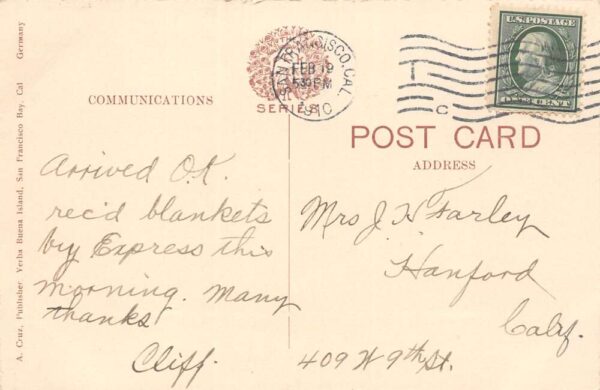 A. Cruz, Publisher Yerba Buena Island, San Francisco Bay, Cal Germany
COMMUNICATIONS
SERIES
SAN FRANCISCO, CAL.
FEB 19
530 PM
1910
T
C
U.S. POSTAGE
ONE CENT
POST CARD
ADDRESS
Arrived O.K.
rec'd blankets
by Express this
morning. Many
thanks
Cliff.
Mrs J H Farley
Hanford
Calif.
409 W 9th St.